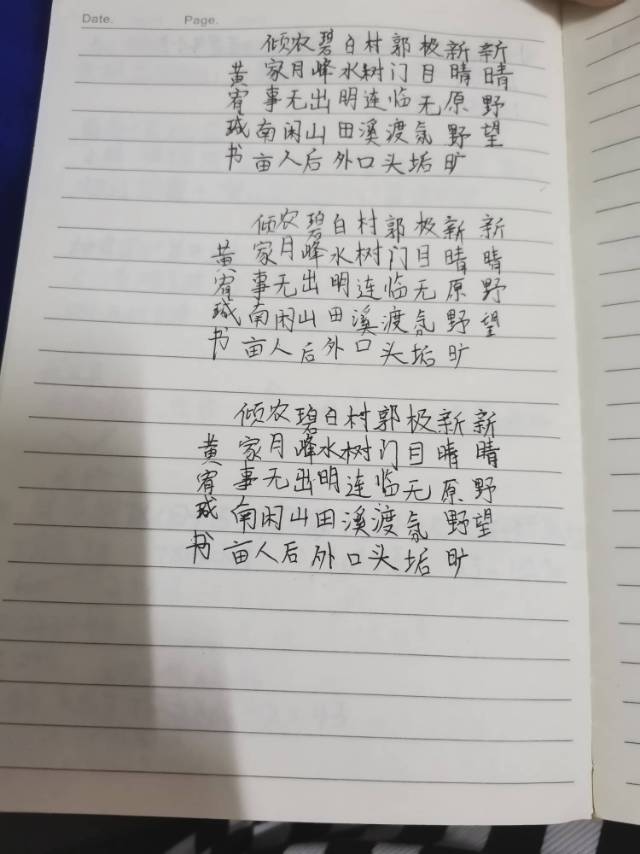 Date. Page.
新晴野望
新晴原野旷
极目无氛垢
郭门临渡头
村树连溪口
白水明田外
碧峰出山后
农月无闲人
倾家事南亩
黄宥珹书
新晴野望
新晴原野旷
极目无氛垢
郭门临渡头
村树连溪口
白水明田外
碧峰出山后
农月无闲人
倾家事南亩
黄宥珹书
新晴野望
新晴原野旷
极目无氛垢
郭门临渡头
村树连溪口
白水明田外
碧峰出山后
农月无闲人
倾家事南亩
黄宥珹书